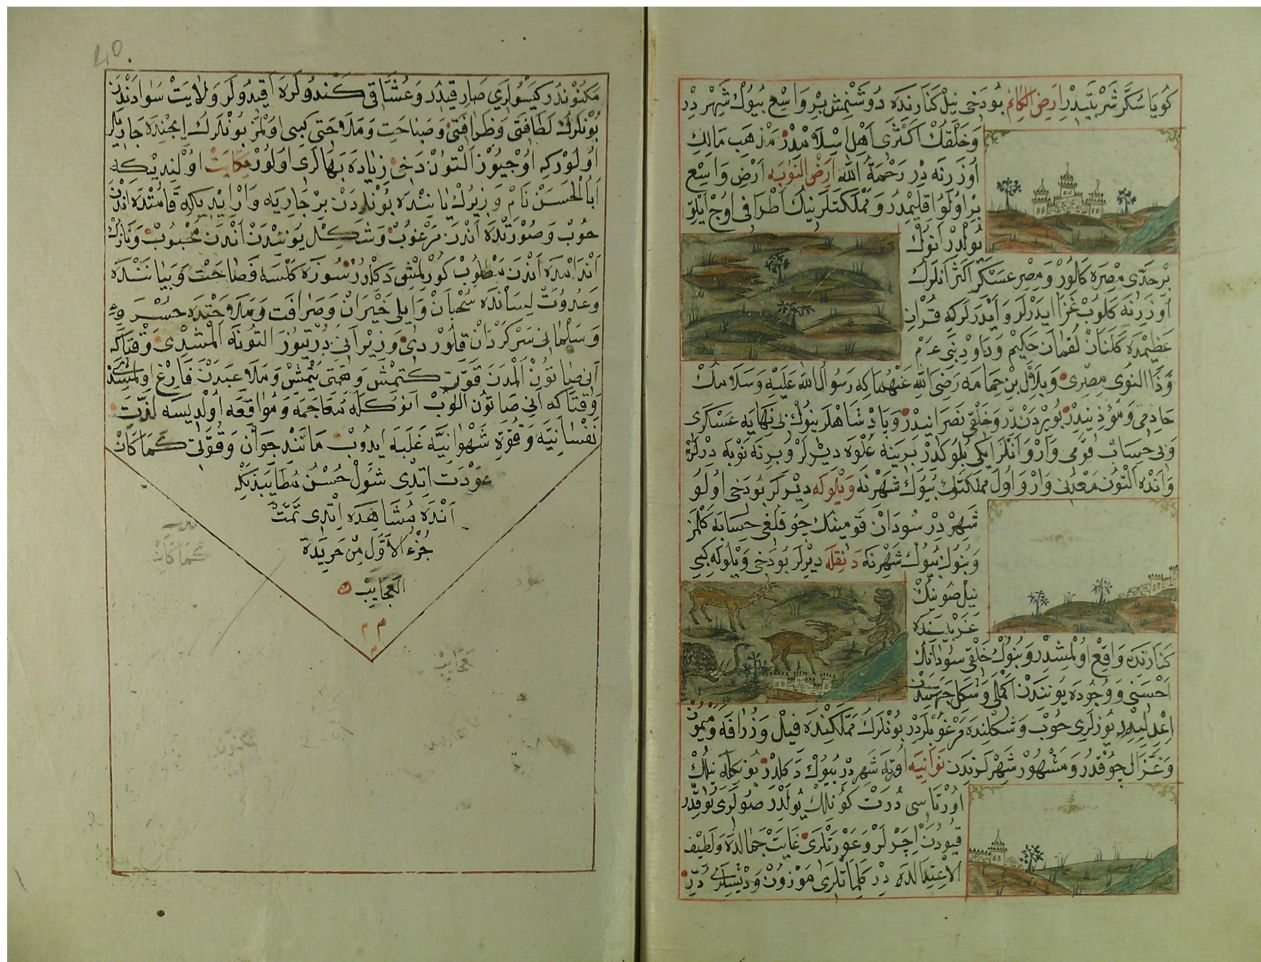 كويا سكر شربتيدر ارض الكانم بودخى نيل كنارنده دوشمش بر واسع بيوك شهر در
و خلقنك اكثرى اهل اسلامدر مذهب مالك
اوزرنه در رحمة الله ارض النوبه ارض واسع
بر اولو اقليمدر و مملكتلرينك اطرافى اوج ايلق
يولدر انوك
بر حدى مصره كالور و مصر عسكرى اكثر انلرك
اوزرينه كلوب غزا ايدرلر و ايدرلركه قران
عظيمده كلنان لقمان حكيم و داود نبى عم
و ذا النون مصرى و بلال بن حمامه رضى الله عنهما كه رسول الله عليه و سلامك
خادمى و مؤذنيدر بويردندر و خلقى نصرانيدر و پادشاهلرينوك بى نهايه عسكرى
و بى حساب قومى وار و انلر ايكى بلوكدر برينه علوه ديرلر و برينه نوبه ديرلر
و انده التون معدنى وار و اول مملكتك بيوك شهرنه ويلوله ديرلر بودخى اولو
شهر در سودان قومينك چوقلغى حسابه كلمز
و بيوك شهرنه دنقله ديرلر بودخى ويلوله كبى
نيل صوينك
غربيسنده
كنارنده واقع اولمشدر و بونوك خلقى سودانك
احسنى و وجوده يونندن اكملى و شكل جهتيندن
اعدليدر يوزلرى خوب و شكلنده مرغوبلردر بونلرك مملكتنده فيل و زرافه و ميمون
و غزال چوقدر و مشهور شهرلرندن نوابيه اورته شهر در بيوك دكلدر بونكله نيلك
اورتاسى درت كونلك يولدر صولرى يوقدر
قيودن ايچرلر و عورتلرى غايت جمالده و لطيف
الاعتدالده در كلماتلرى موزون و ديشلرى در
مكنوندر كيسولرى صارقيدر و عشاقى كندولره اقيدولر ولايت سوادندن
بونلرك لطافتى و ظرافتى و صباحت و ملاحتى كبى اولمز بونلرك ايچنده جاريه
اولور كه اوچيوز التوندن دخى زياده بهالرى اولور حكايت اولنديكه
ابالحسن نام وزيرك ياننده بونلردن بر جاريه وار ايديكه قامتده اندن
خوب و صورتده اندن مرغوب و شكل يونندن اندن محبوب و نازك
اندامده اندن مطلوب كورلمش دكلدر سوره كلسه فصاحت و بياننده
و عذوبت لسانده سحبان وايلى حيران و صرافت و ملاحتده خسرو
و سليمانى سركردان قلوردى وزير انى درتيوز التونه المشدى وقتاكه
انى صاتون المدن قوت كتمش و همتى يتمش و ملاعبدن فارغ اولمشدى
وقتاكه انى صاتون الوب انوكله مجامعه و مواقعه اولديسه لذت
نفسانيه و قوه شهوانيه غلبه ايدوب مانند جوان و قوتى كماكان
عودت ايتدى شول حسن مطايبه يكه
انده مشاهده ايتدى تمت
جزء الاول من خريدة
العجايب
م م
40